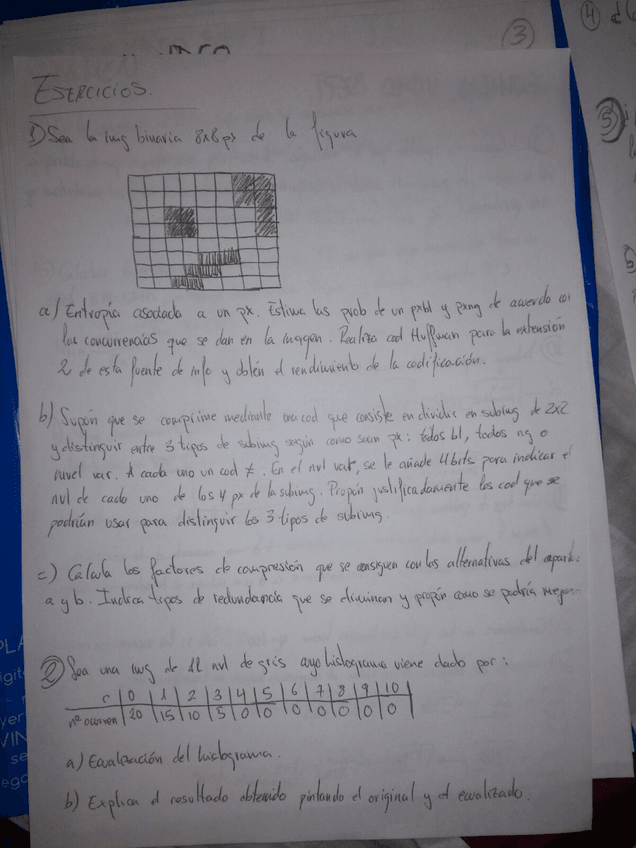 ③
④
ESERCICIOS.
① Sea la img binaria 8x8 px de la figura
a) Entropía asociada a un px. Estima las prob de un pxbl y pxng de acuerdo con
las concurrencias que se dan en la imagen. Realiza cod Huffman para la extensión
2 de esta fuente de info y obtén el rendimiento de la codificación.
b) Supón que se comprime mediante una cod que consiste en dividir en subimg de 2x2
y distinguir entre 3 tipos de subimg según como sean px: todos bl, todos ng o
nivel var. A cada uno un cod ≠. En el nvl var, se le añade 4 bits para indicar el
nvl de cada uno de los 4 px de la subimg. Propón justificadamente los cod que se
podrían usar para distinguir los 3 tipos de subimg.
c) Calcula los factores de compresión que se consiguen con las alternativas del
a y b. Indica tipos de redundancia que se eliminan y propón como se podría
② Sea una img de 11 nvl de gris cuyo histograma viene dado por:
r | 0 | 1 | 2 | 3 | 4 | 5 | 6 | 7 | 8 | 9 | 10
nº ocurren | 20 | 15 | 10 | 5 | 0 | 0 | 0 | 0 | 0 | 0 | 0
a) Ecualización del histograma.
b) Explica el resultado obtenido pintando el original y el ecualizado.